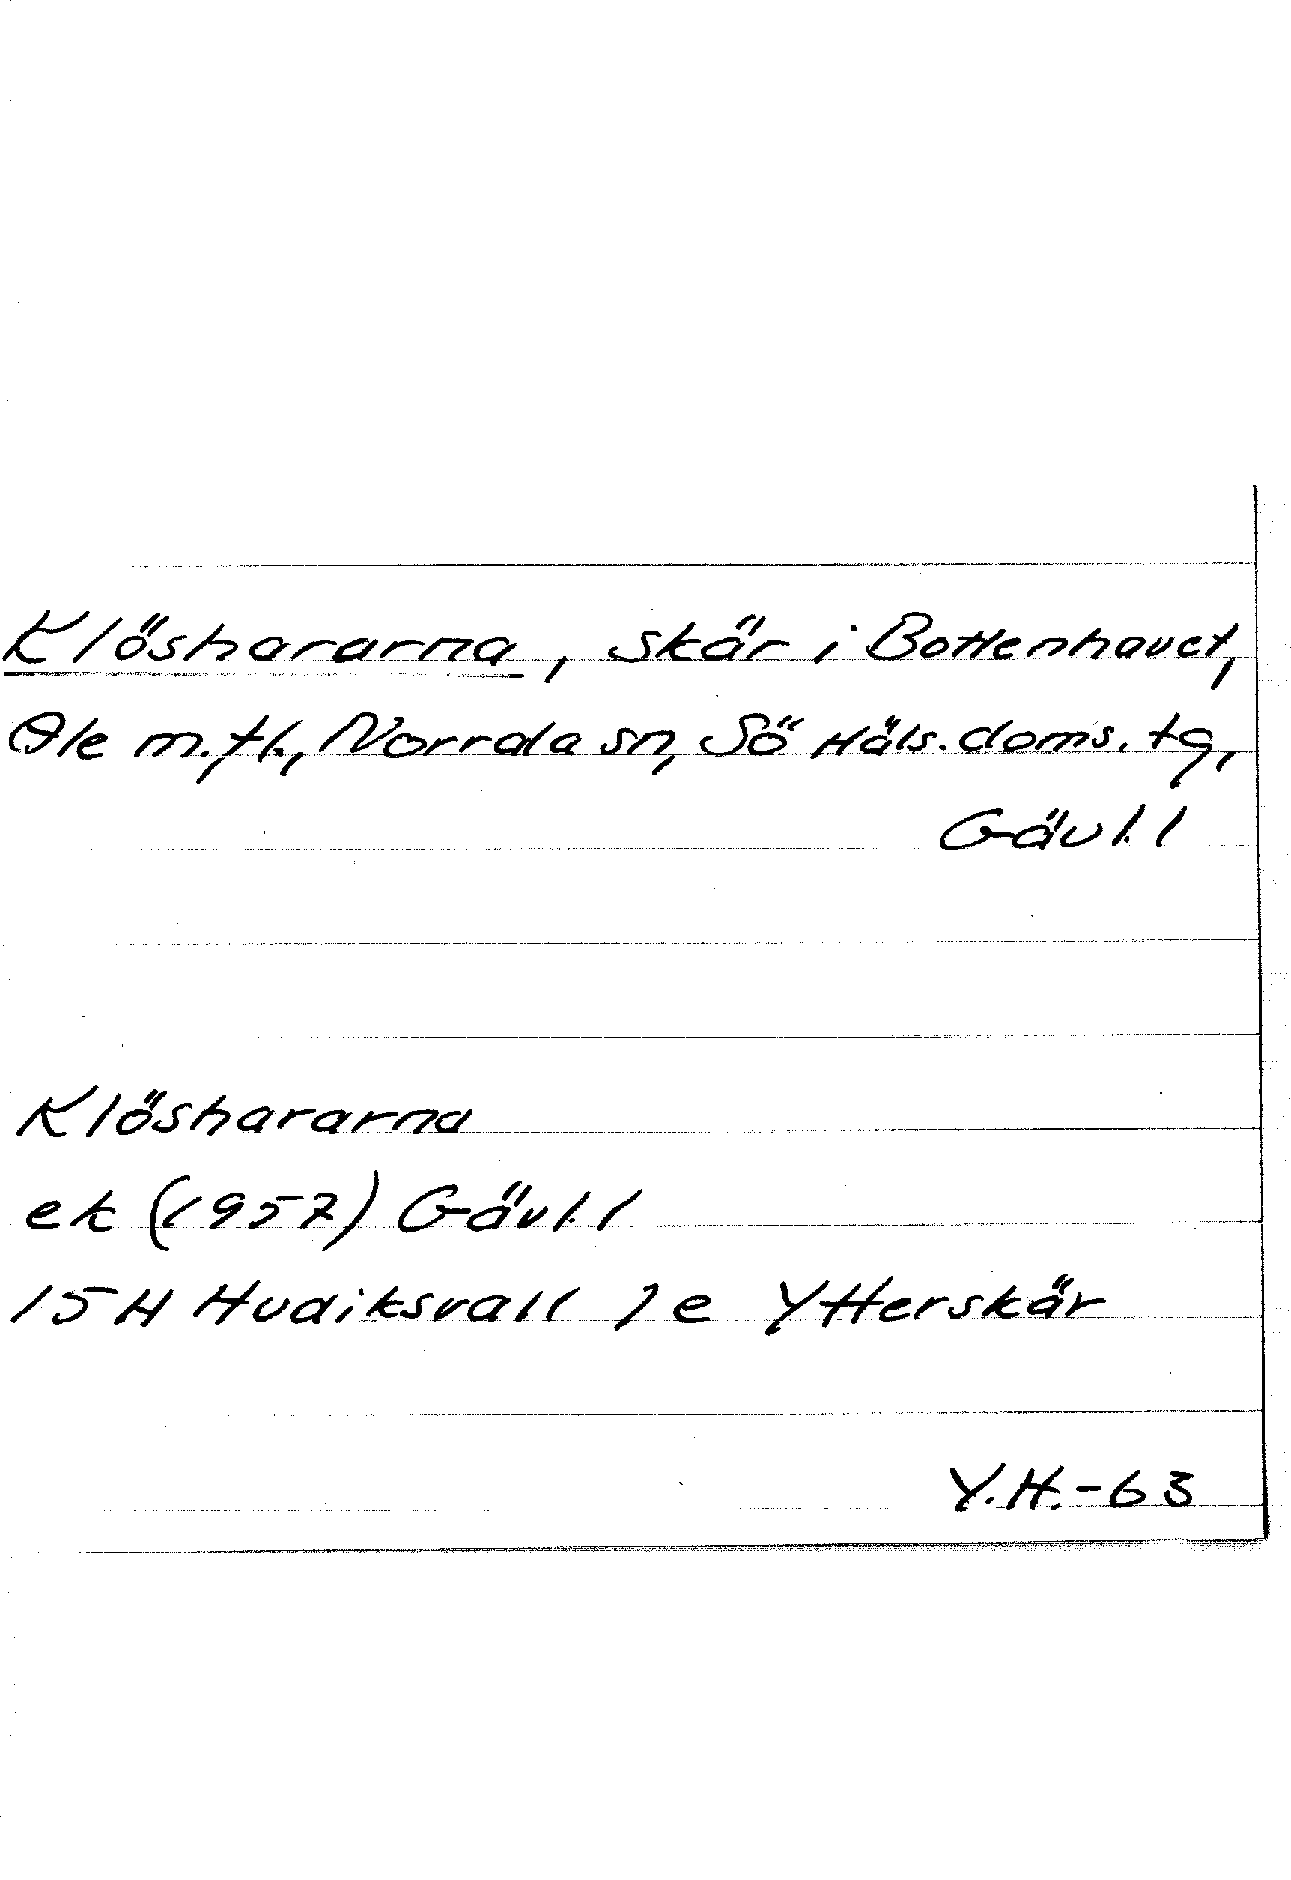 Klöshararna, skär i Bottenhavet,
Åle m.fl., Norrala sn, Sö Häls. doms. tg,
Gävl. l
Klöshararna
ek (1957) Gävl. l
15H Hudiksvall 1e Ytterskär
Y.H.-63